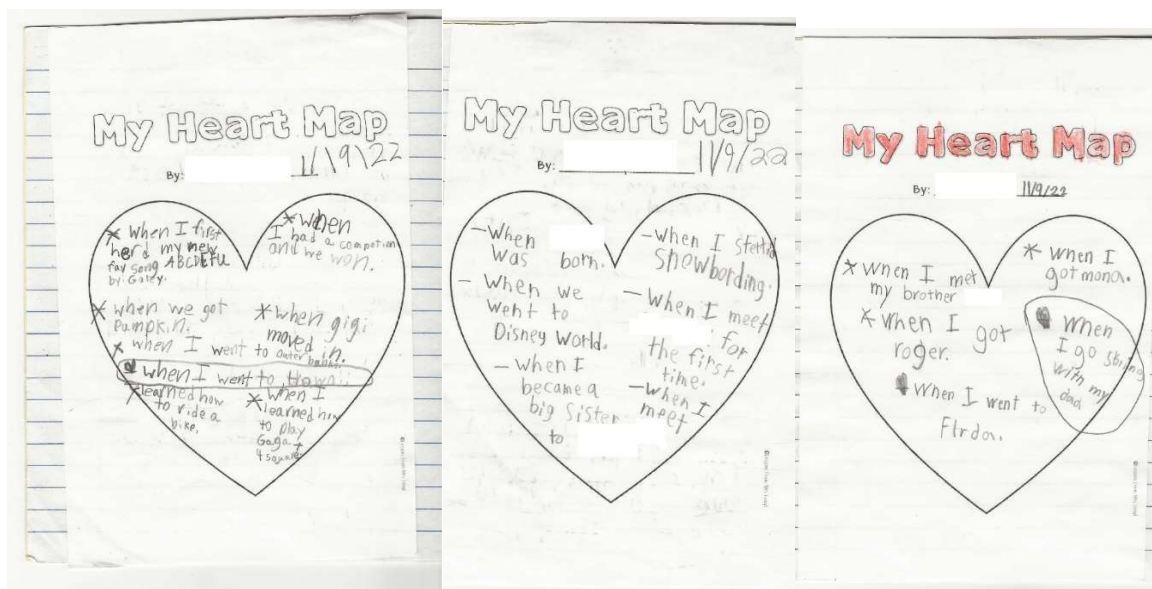 My Heart Map
By: 11/9/22
* When I first
herd my new
fav song
ABCDEFU
by Galey.
* when
I had a compotion
and we won.
* when we got
Pumpkin.
* when gigi
moved in.
* when I went to outer banks.
when I went to Hawaii
* learned how
to ride a
bike.
* when I
learned how
to play
Gaga +
4 square
My Heart Map
By: 11/9/22
- When
was born.
- When we
went to
Disney World.
- when I
became a
big Sister
to
- when I started
snowbording.
- When I meet
for
the first
time.
- when I
meet
My Heart Map
By: 11/9/22
* When I met
my brother
* When I got
roger.
When I went to
Flrda.
* When I
got mona.
When
I go skiing
with my
dad